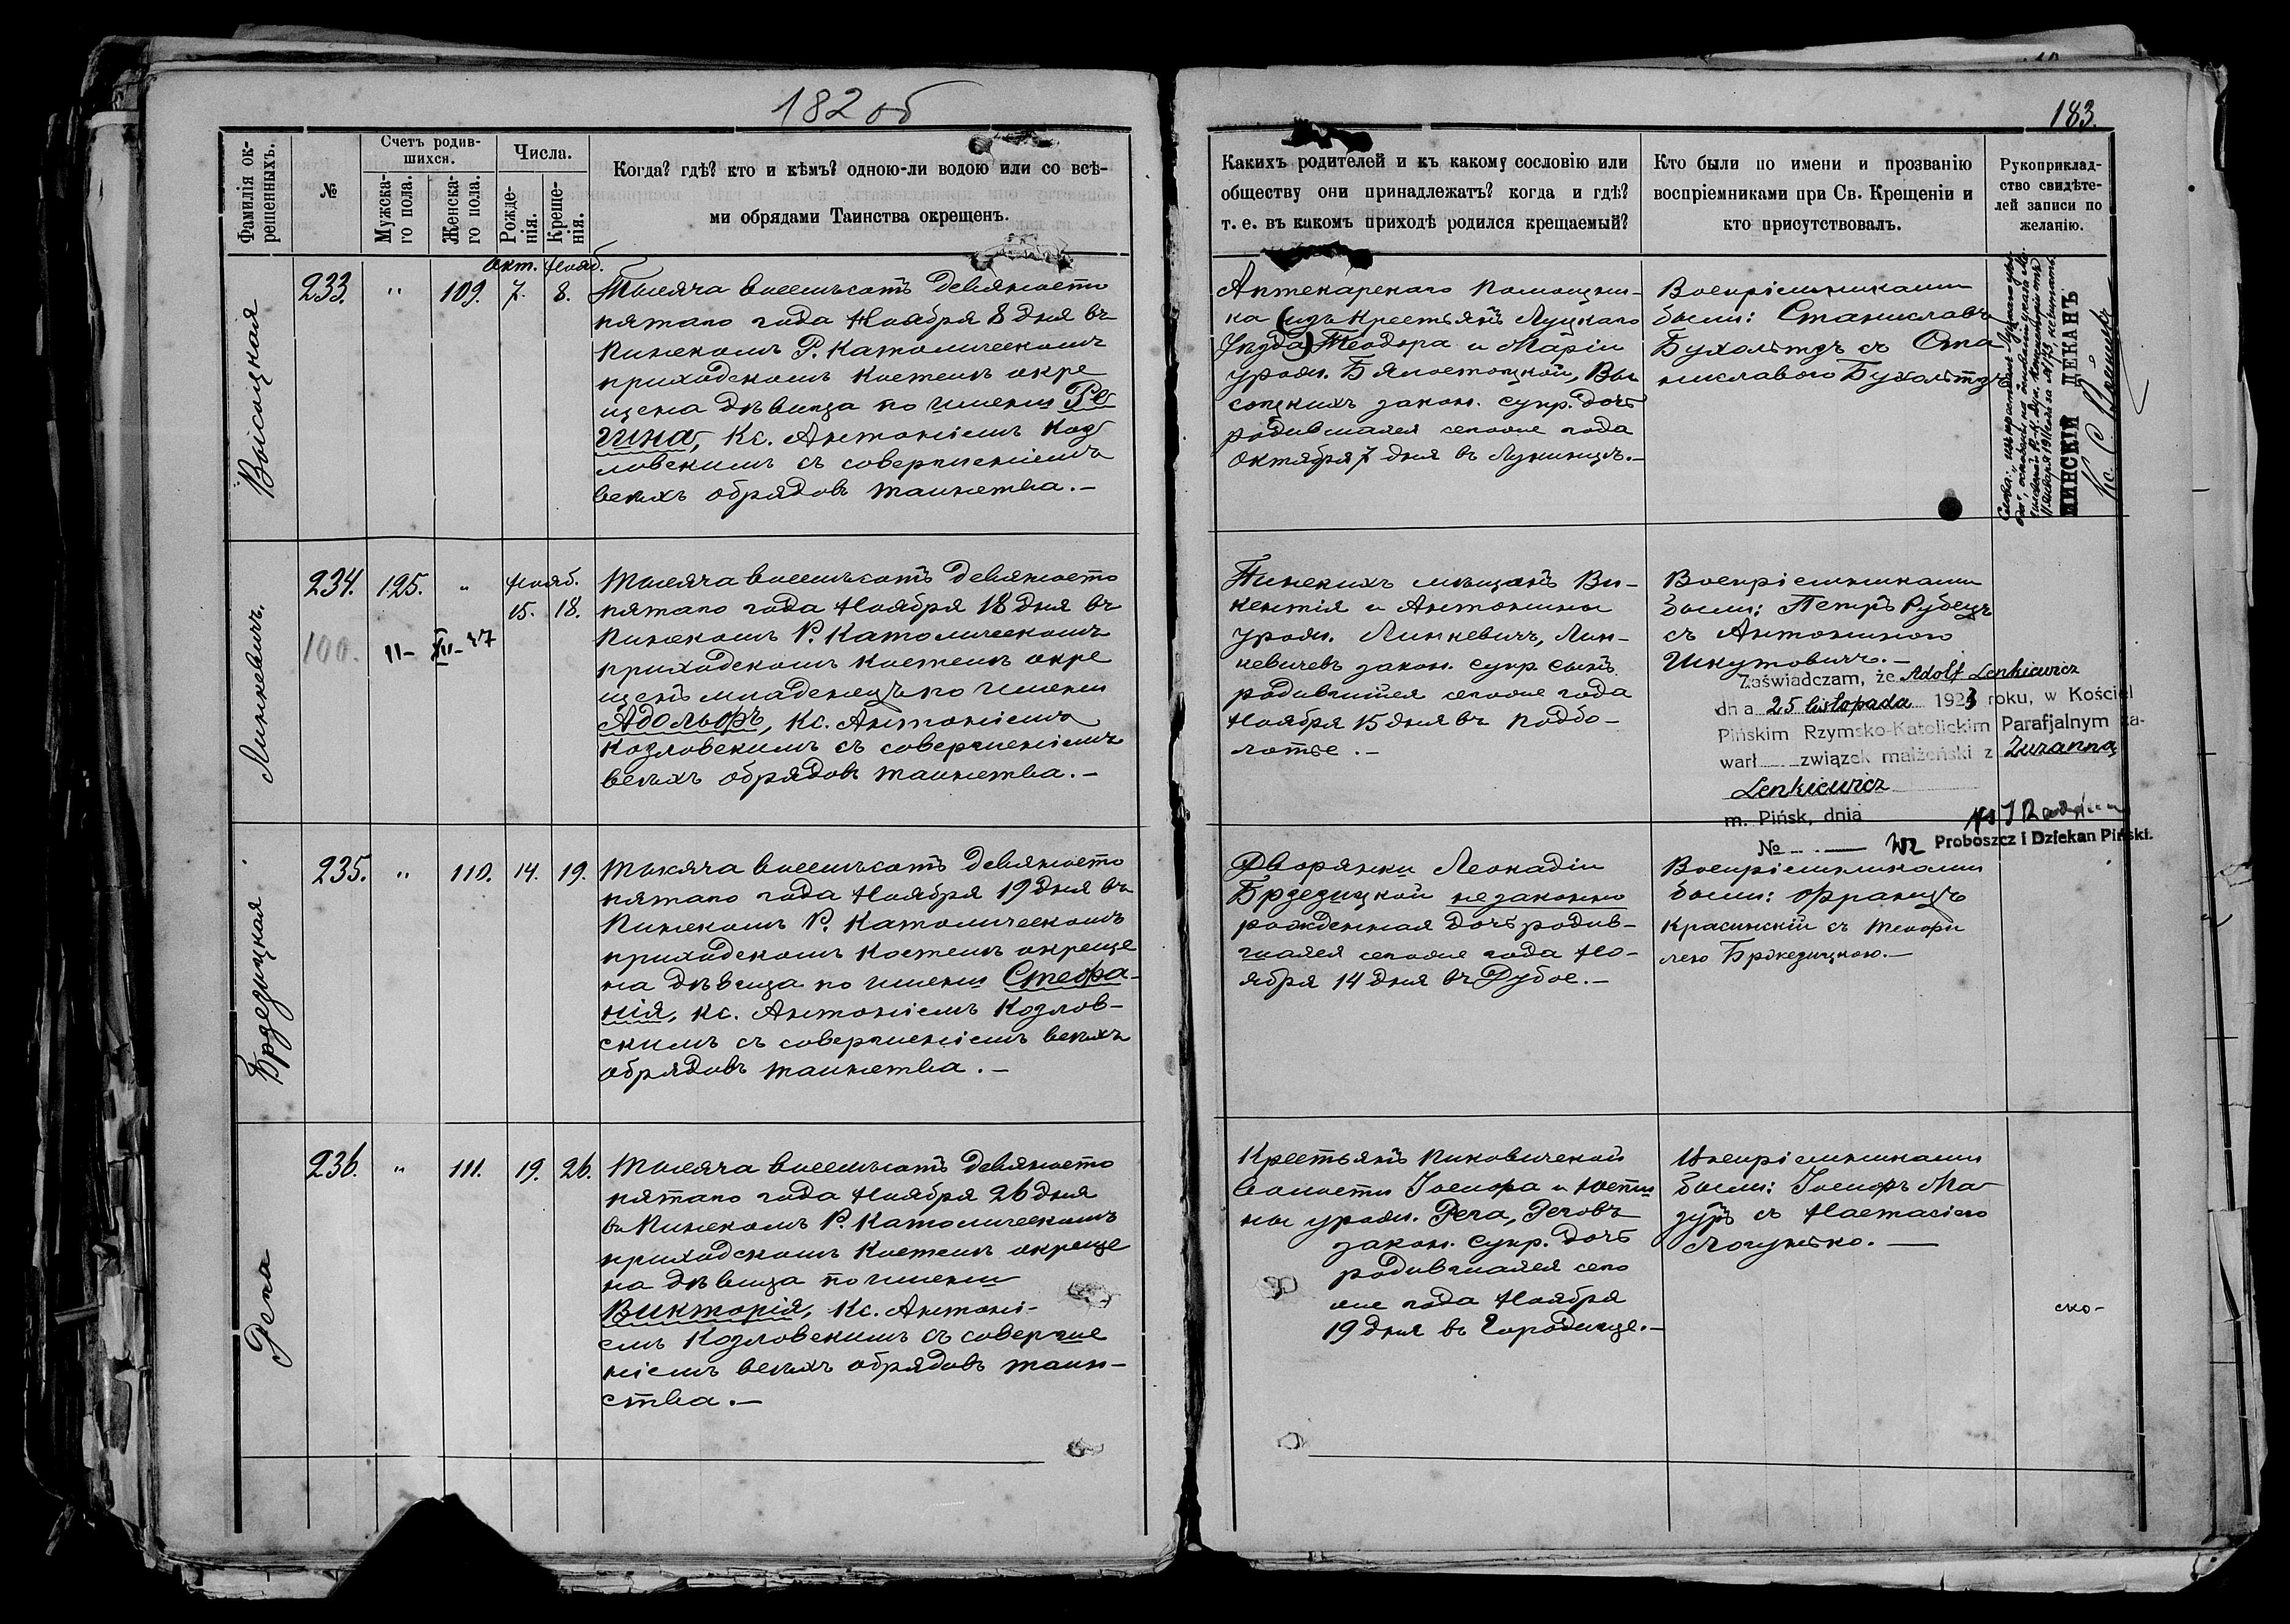 182 об
Фамилія ок-
рещенныхъ.
№
Счетъ родив-
шихся.
Мужска-
го пола.
Женска-
го пола.
Числа.
Рожде-
нія.
Креще-
нія.
Когда? гдѣ? кто и кѣмъ? одною-ли водою или со всѣ-
ми обрядами Таинства окрещенъ.
Высоцкая
233.
"
109.
Окт. Нояб.
7. 8.
Тысяча восемьсотъ девяносто
пятаго года Ноября 8 дня въ
Пинскомъ Р. Католическомъ
приходскомъ костелѣ окре
щена дѣвица по имени Ре
гина, Кс. Антоніемъ Коз
ловскимъ съ совершеніемъ
всѣхъ обрядовъ таинства.—
Линкевичъ.
234.
125.
"
Нояб.
15. 18.
100.
11- XII-47
Тысяча восемьсотъ девяносто
пятаго года Ноября 18 дня въ
Пинскомъ Р. Католическомъ
приходскомъ костелѣ окре
щенъ младенецъ по имени
Адольфъ, Кс. Антоніемъ
Козловскимъ съ совершеніемъ
всѣхъ обрядовъ таинства.—
Брзезицкая
235.
"
110.
14. 19.
Тысяча восемьсотъ девяносто
пятаго года Ноября 19 дня въ
Пинскомъ Р. Католическомъ
приходскомъ костелѣ окреще
на дѣвица по имени Стефа-
нія, Кс. Антоніемъ Козлов-
скимъ съ совершеніемъ всѣхъ
обрядовъ таинства.—
Рега
236.
"
111.
19. 26.
Тысяча восемьсотъ девяносто
пятаго года Ноября 26 дня
въ Пинскомъ Р. Католическомъ
приходскомъ костелѣ окреще
на дѣвица по имени
Викторія, Кс. Антоні-
емъ Козловскимъ съ соверше
ніемъ всѣхъ обрядовъ таин-
ства.—
183.
Какихъ родителей и къ какому сословію или
обществу они принадлежатъ? когда и гдѣ?
т. е. въ какомъ приходѣ родился крещаемый?
Кто были по имени и прозванію
воспріемниками при Св. Крещеніи и
кто присутствовалъ.
Рукоприклад-
ство свидѣте-
лей записи по
желанію.
Аптекарскаго Помощни-
ка (изъ Крестьянъ Луцкаго
Уѣзда) Теодора и Маріи
урожд. Бялостоцкой, Вы
соцкихъ закон. супр. дочь
родившаяся сегоже года
Октября 7 дня въ Лунинцѣ.—
Воспріемниками
были: Станиславъ
Бухольтцъ съ Ста
ниславою Бухольтцъ
МИНСКІЙ ДЕКАНЪ
Пинскихъ мѣщанъ Ви-
кентія и Антонины
урожд. Линкевичъ, Лин-
кевичевъ закон. супр. сынъ
родившійся сегоже года
Ноября 15 дня въ Поддбо-
лотье.—
Воспріемниками
были: Петръ Рубецъ
съ Антониною
Шкутовичъ.—
Zaświadczam, że Adolf Lenkiewicz
dnia 25 listopada 1923 roku, w Kościel
Pińskim Rzymsko-Katolickim Parafjalnym za-
warł związek małżeński z Zuzanną
Lenkiewicz
m. Pińsk, dnia
№
Proboszcz i Dziekan Piński.
Дворянки Леокадіи
Брзезицкой незаконно
рожденная дочь родив-
шаяся сегоже года Но-
ября 14 дня въ Дубое.—
Воспріемниками
были: Францъ
Красинскій съ Теофи
лею Бржезицкою.—
Крестьянъ Пиковичской
Волости Іосифа и Юсти
ны урожд. Рега, Реговъ
закон. супр. дочь
родившаяся сего
же года Ноября
19 дня въ Городище.—
Воспріемниками
были: Іосифъ Ма
зуръ съ Настасіею
Могунько.—
ско-